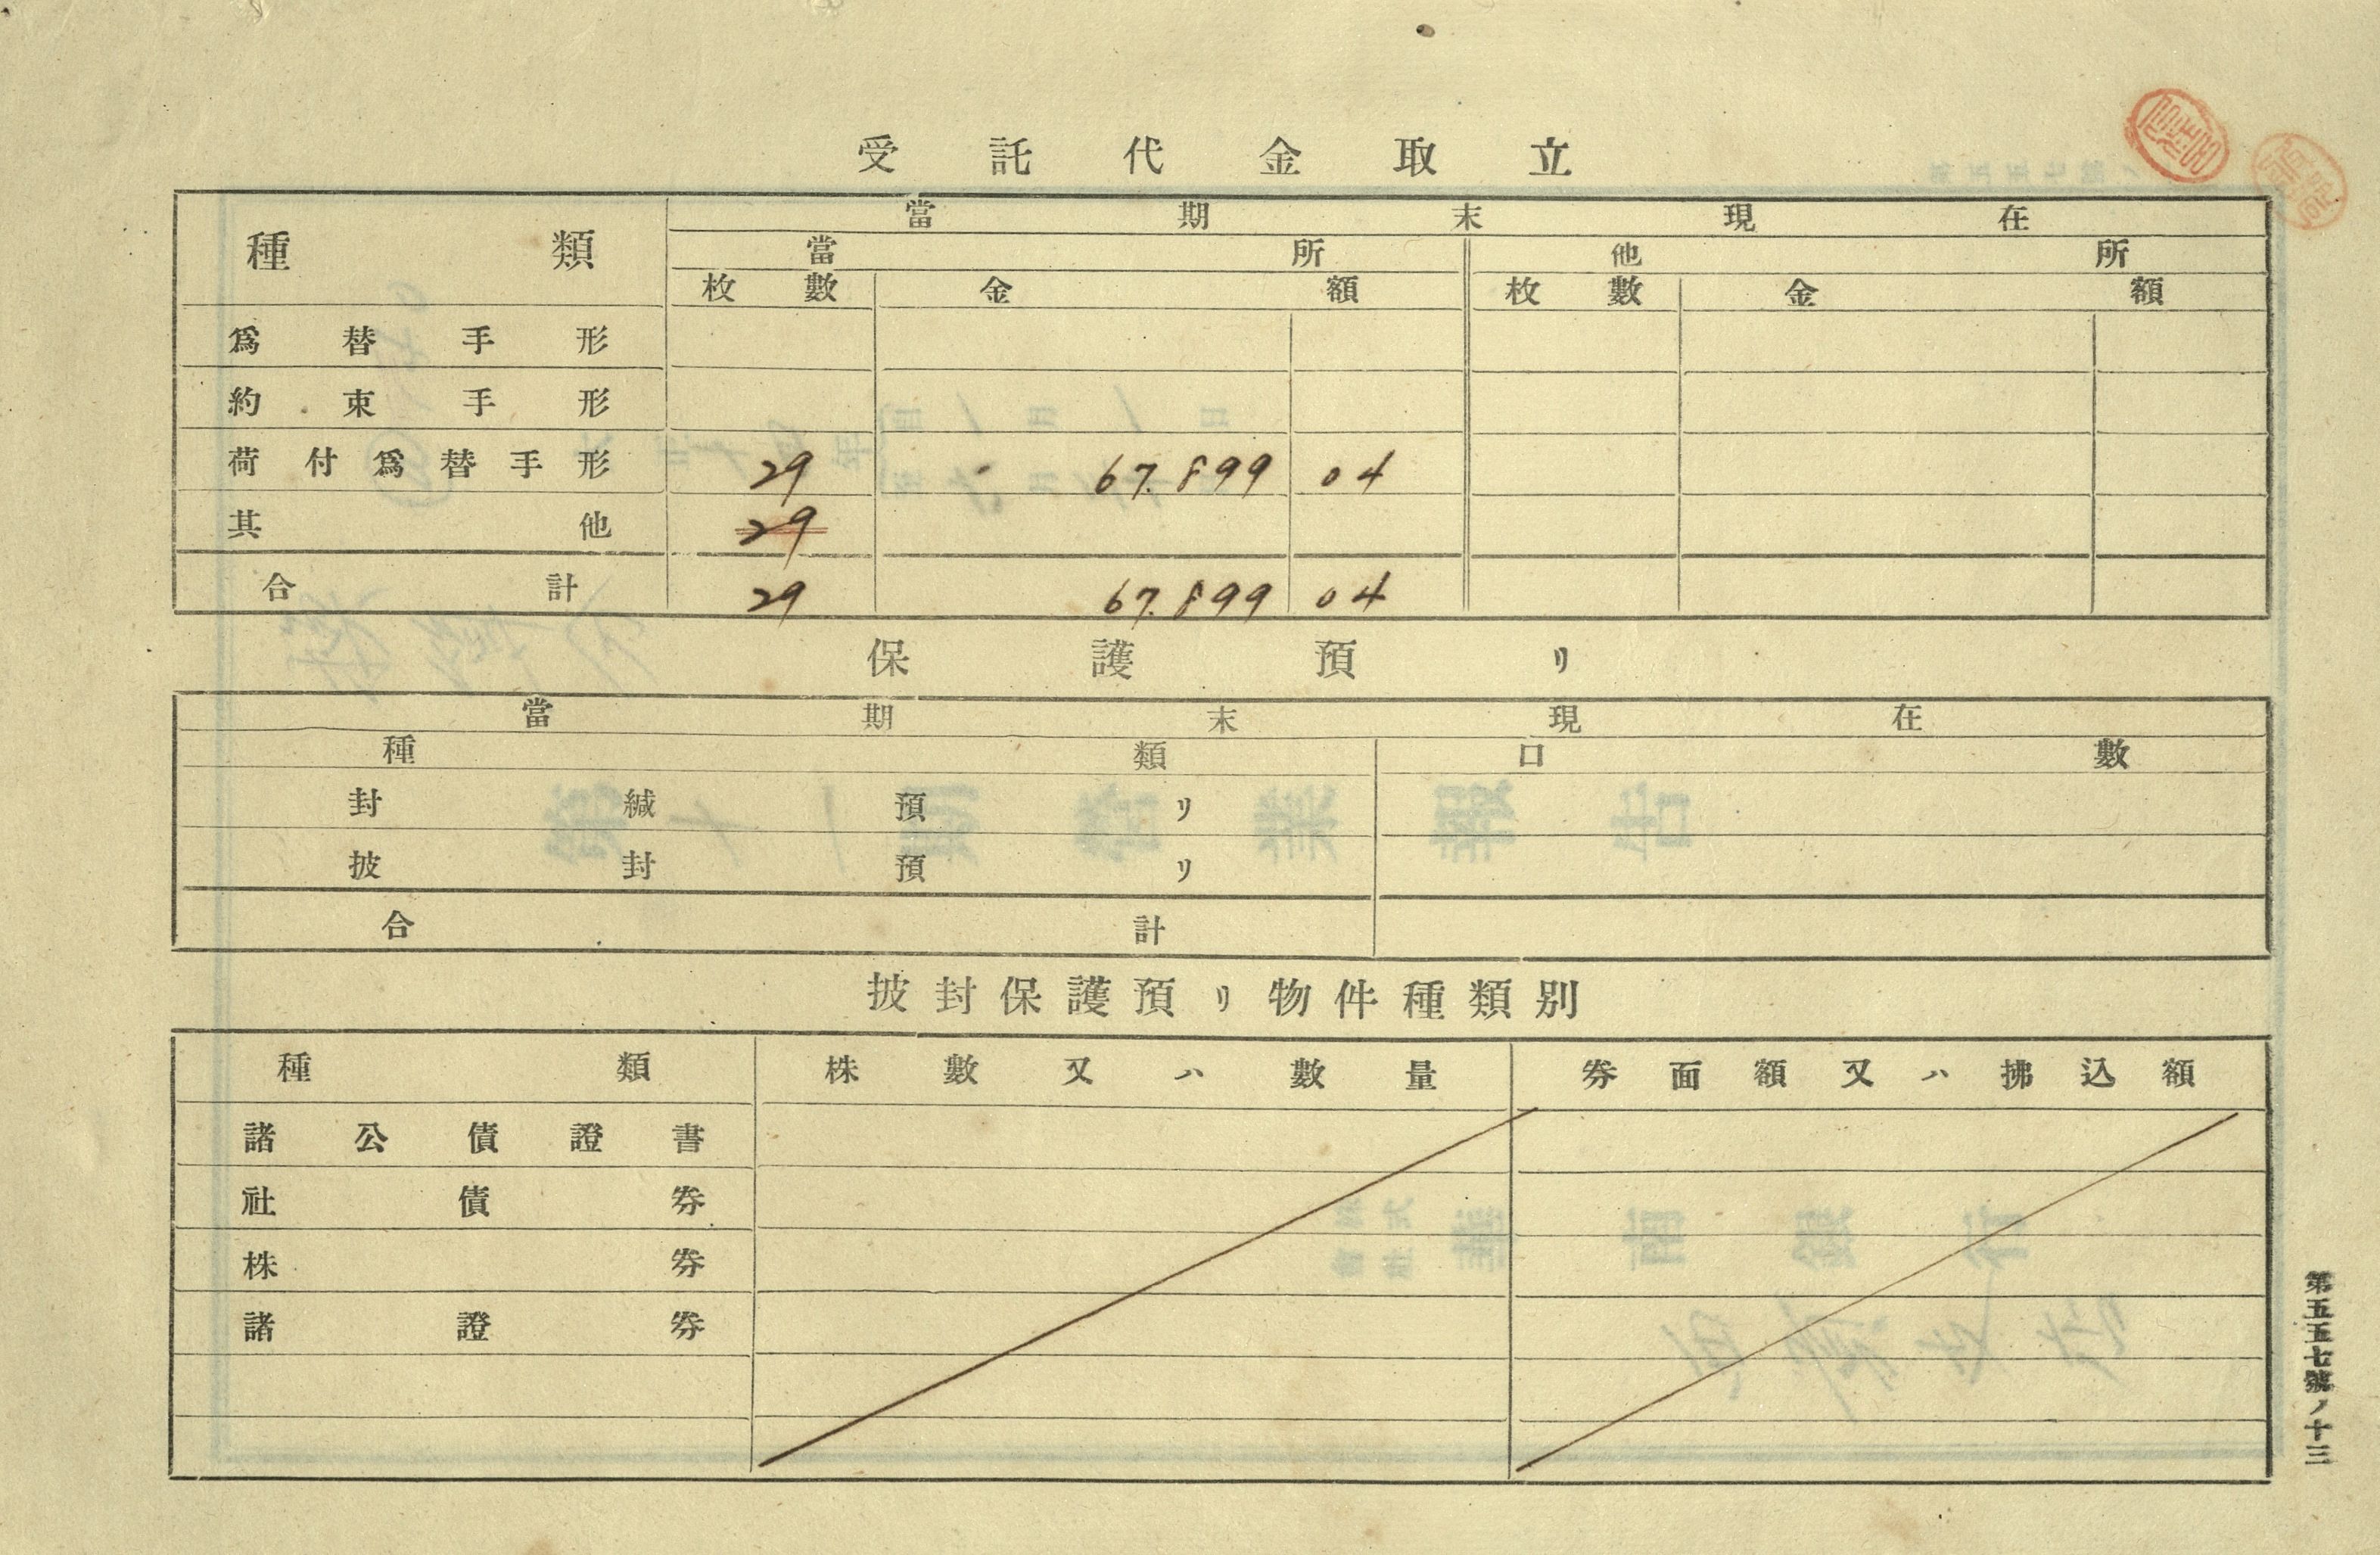 受託代金取立
種類 當期末現在
當所 他所
枚數 金額 枚數 金額
爲替手形
約束手形
荷付爲替手形 29 67.899 04
其他 29
合計 29 67.899 04
保護預リ
當期末現在
種類 口數
封緘預リ
披封預リ
合計
披封保護預リ物件種類別
種類 株數又ハ數量 券面額又ハ拂込額
諸公債證書
社債券
株券
諸證券
第五五七號ノ十三